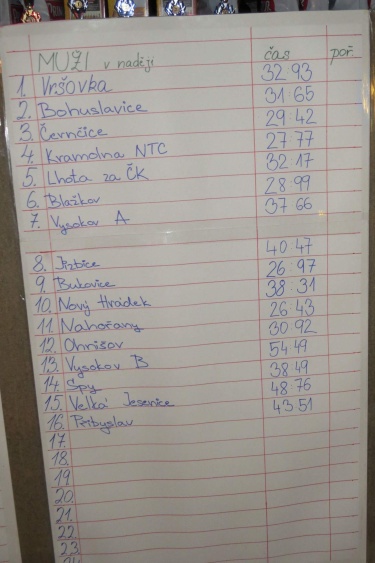 MUŽI v naději čas poř
1. Vršovka 32 93
2. Bohuslavice 31 65
3. Černčice 29 42
4. Kramolna NTC 27 77
5. Lhota za ČK 32 17
6. Blažkov 28 99
7. Vysokov A 37 66
8. Jizbice 40 47
9. Bukovice 26 97
10. Nový Hrádek 38 31
11. Nahořany 26 43
12. Ohnišov 30 92
13. Vysokov B 54 49
14. Spy 38 49
15. Velká Jesenice 48 76
16. Přibyslav 43 51
17.
18.
19.
20.
21.
22.
23.
24.